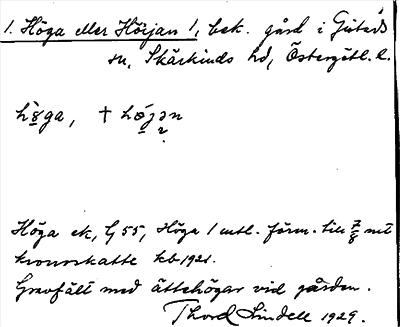 1. Höga eller Höijan 1, bek. gård i Gistads
sn, Skärkinds hd, Östergötl. l.
hö̀ga, † höjən
?
Höga ek, G 55, Höga 1 mtl. förm. till 7/8 mtl
kronoskatte kb 1921.
Gravfält med ättehögar vid gården.
Thord Lindell 1929.